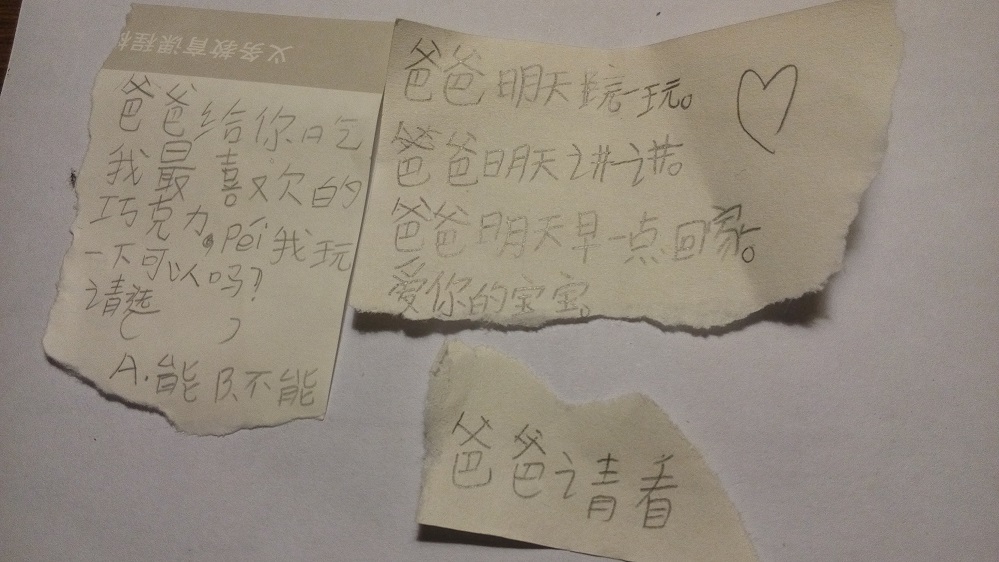 义务教育课程标
爸爸给你吃
我最喜欢的
巧克力,pei我玩
一下可以吗?
请选
( )
A.能 B.不能
爸爸明天玩一玩。
爸爸明天讲一讲。
爸爸明天早一点回家。
爱你的宝宝。
爸爸请看